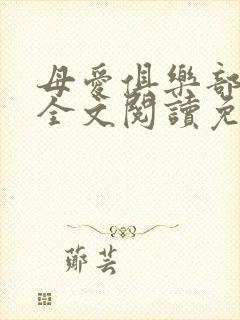 母愛俱樂部
全文閱讀免
鄭芸